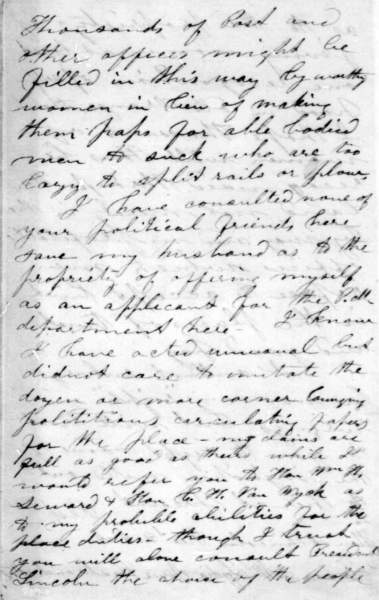 Thousands of Post and
other offices might be
filled in this way by worthy
women in lieu of making
them paps for able bodied
men to suck who are too
lazy to split rails or plow.
I have consulted none of
your political friends here
save my husband as to the
propriety of offering myself
as an applicant for the P.M.
department here - I know
I have acted unusual but
did not care to imitate the
dozen or more corner lounging
polititians circulating papers
for the place - my claims are
full as good as theirs while I
would refer you to Hon Wm H.
Seward & Hon C. H. Van Wyck as
to my probable abilities for the
place duties - though I trust
you will alone consult President
Lincoln the choice of the people